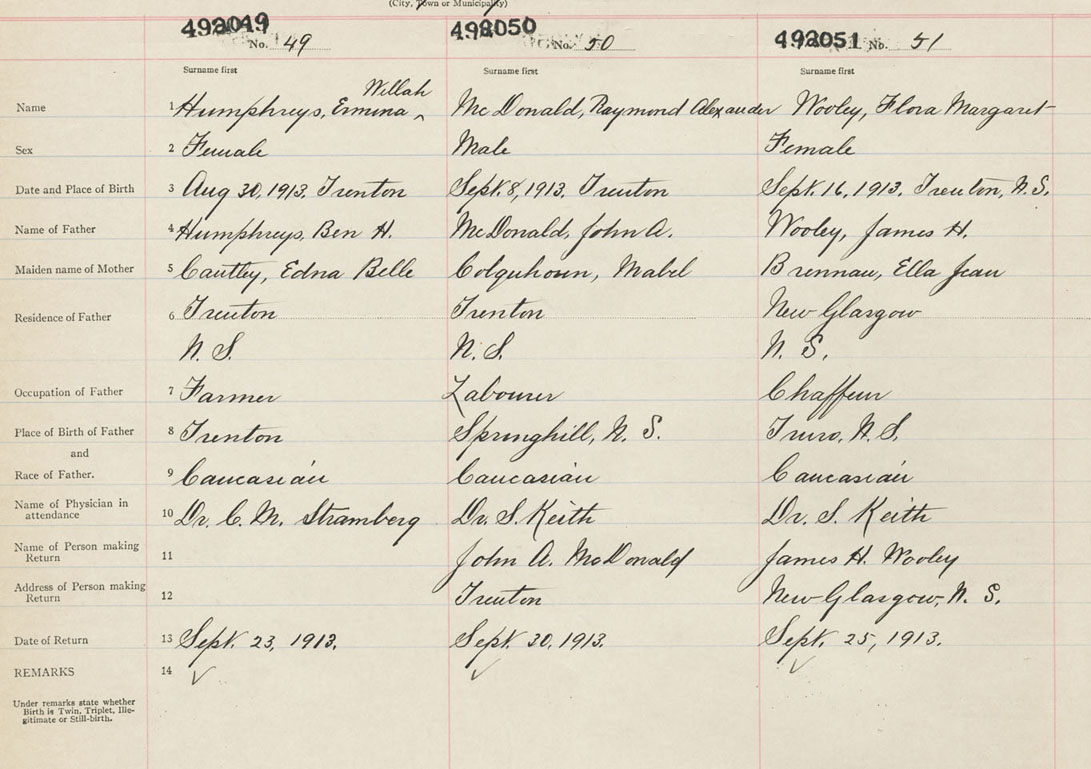 (City, Town or Municipality)
492049 492050 492051
No. 49 No. 50 No. 51
Surname first Surname first Surname first
Willah
Name 1 Humphreys, Ermina ‸ McDonald, Raymond Alexander Wooley, Flora Margaret
Sex 2 Female Male Female
Date and Place of Birth 3 Aug 30, 1913. Trenton Sept. 8, 1913. Trenton Sept. 16, 1913. Trenton, N.S.
Name of Father 4 Humphreys, Ben H. McDonald, John A. Wooley, James H.
Maiden name of Mother 5 Cantley, Edna Belle Colquhoun, Mabel Brennan, Ella Jean
Residence of Father 6 Trenton Trenton New Glasgow
N. S. N. S. N. S.
Occupation of Father 7 Farmer Labourer Chaffeur
Place of Birth of Father 8 Trenton Springhill, N. S. Truro, N.S.
and
Race of Father. 9 Caucasian Caucasian Caucasian
Name of Physician in
attendance 10 Dr. C. M. Stramberg Dr. S. Keith Dr. S. Keith
Name of Person making
Return 11 John A. McDonald James H. Wooley
Address of Person making
Return 12 Trenton New Glasgow, N. S.
Date of Return 13 Sept. 23, 1913. Sept. 30, 1913. Sept. 25, 1913.
REMARKS 14 √ √ √
Under remarks state whether
Birth is Twin, Triplet, Ille-
gitimate or Still-birth.